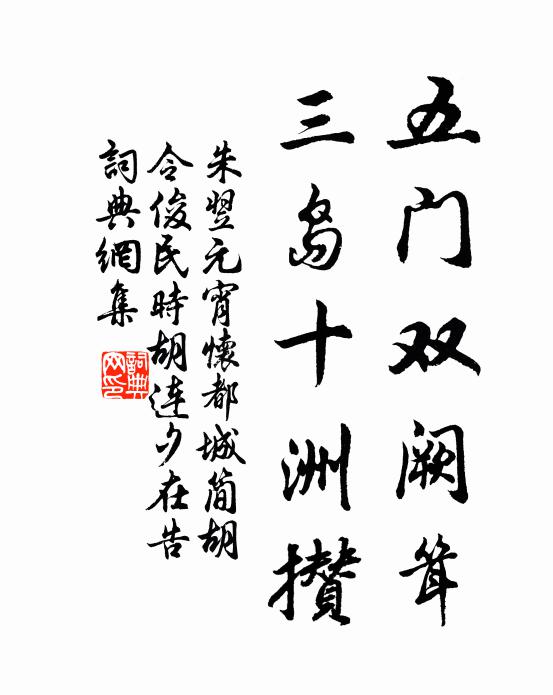 五门双阙耸
三岛十洲攒
朱翌元宵懷都城简胡
令俊民時胡连夕在告
詞典網集
詞典
网印